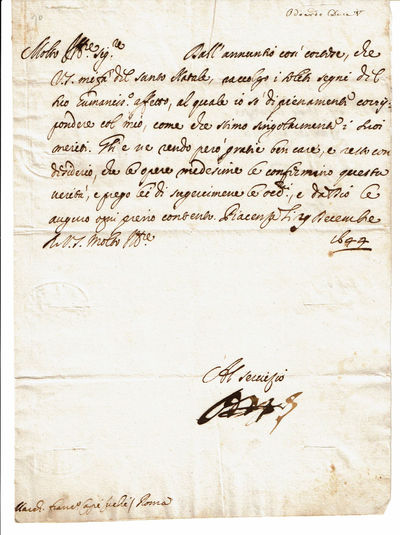 Odoardo Duca V
Molto Ill.re Sig.re Dall'annuntio così cortese, che
V.S. mi fà del santo Natale, raccolgo i soliti segni del
suo humaniss.o affetto, al quale io sò di pienamente corris
pondere col mio, come che stimo singolarmente i suoi
meriti. Gli e ne rendo però gratie ben care, e resto con
desiderio, che le opere medesime le confirmano questa
verità, e prego lei di suggerirmene le, e da Dio le
auguro ogni pieno contento. Piacenza li 29 Decembre
Di V.S. Molto Ill.re 1644
Al servitio
Franc.o Roma